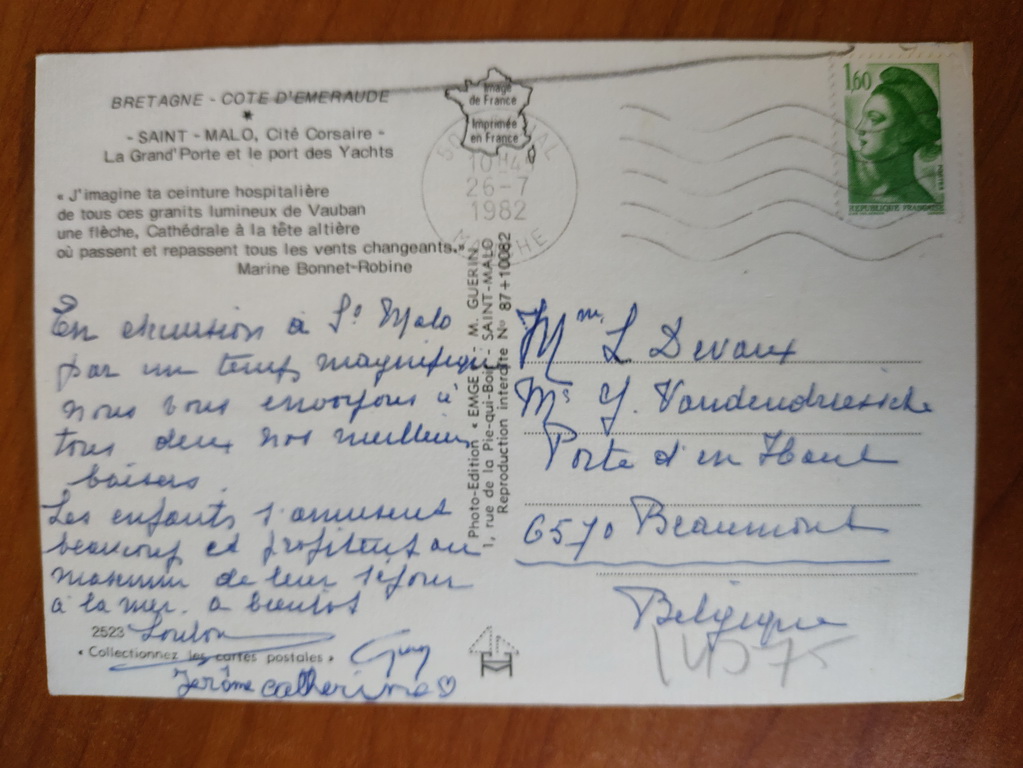 BRETAGNE - COTE D'EMERAUDE
*
- SAINT - MALO, Cité Corsaire -
La Grand'Porte et le port des Yachts
« J'imagine ta ceinture hospitalière
de tous ces granits lumineux de Vauban
une flèche, Cathédrale à la tête altière
où passent et repassent tous les vents changeants. »
Marine Bonnet-Robine
En excursion à St Malo
par un temps magnifique
nous vous envoyons à
tous deux nos meilleurs
baisers.
Les enfants s'amusent
beaucoup et profitent au
maximum de leur séjour
à la mer. a bientôt
2523 Loulou
« Collectionnez les cartes postales » Guy
Jérôme Catherine ♡
Image
de France
Imprimée
en France
50
10H45
26-7
1982
MANCHE
Photo-Edition « EMGE » - M. GUERIN
1, rue de la Pie-qui-Boit - SAINT-MALO
Reproduction interdite N° 87+10082
1,60
REPUBLIQUE FRANÇAISE
Mme L Devaux
Mr Y. Vandendriessche
Porte d'en Haut
6570 Beaumont
Belgique